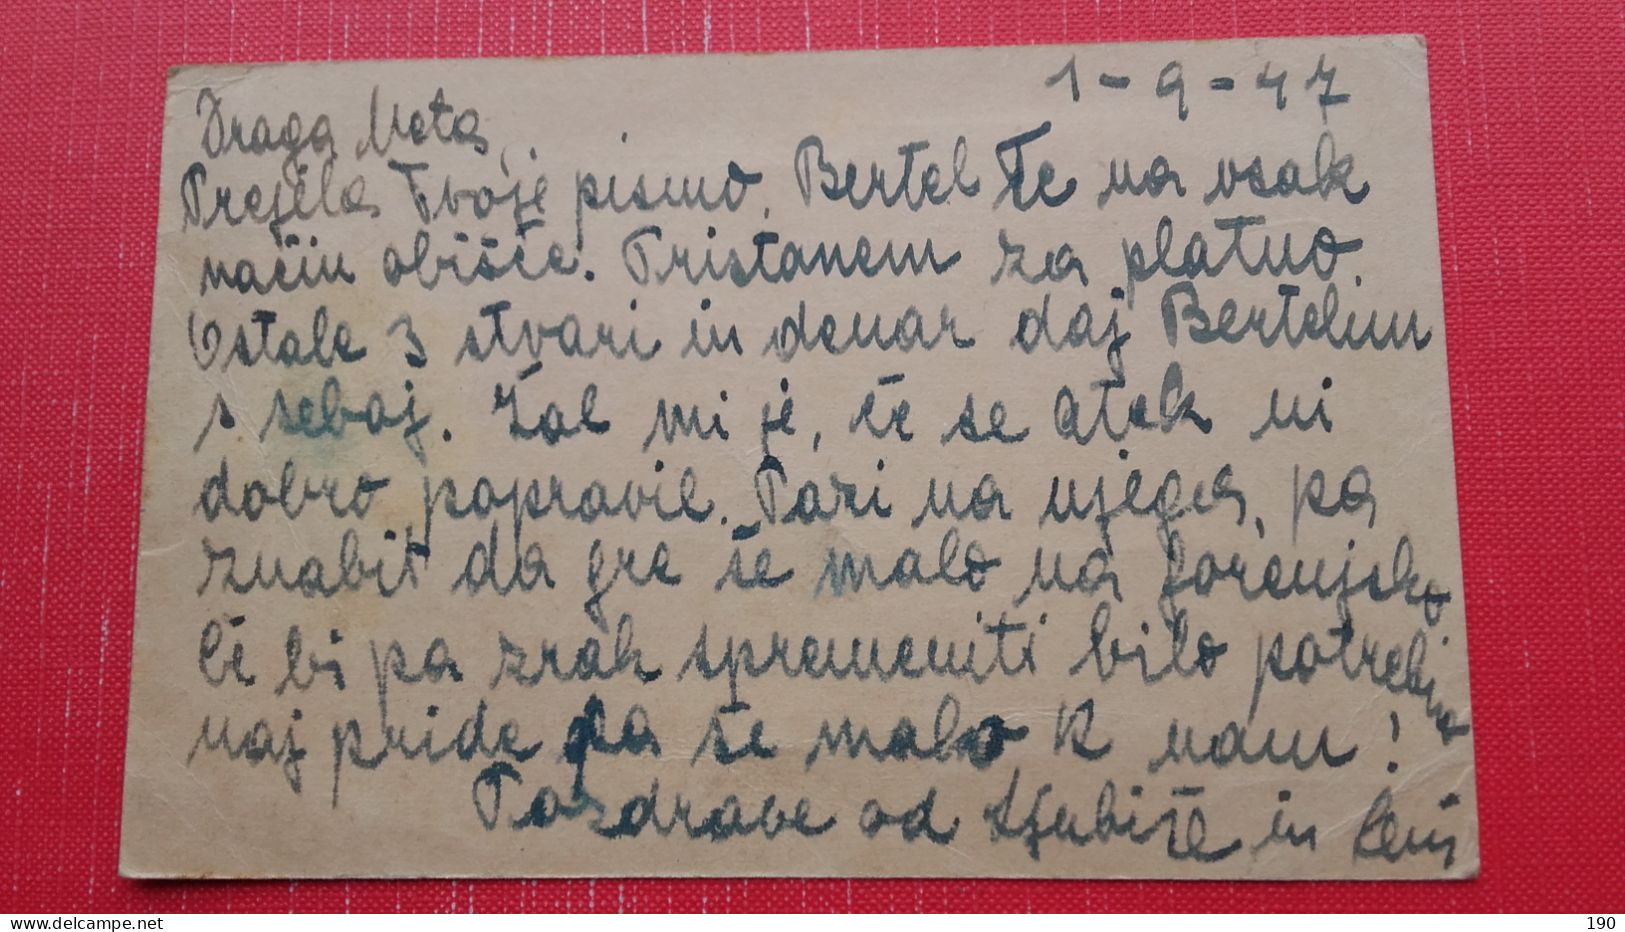 1-9-47
Draga Meta,
Prejela Tvoje pismo. Bertel Te na vsak
način obišče. Pristanem za platno.
Ostale 3 stvari in denar daj Bertelnu
s seboj. Žal mi je, če se Atek ni
dobro popravil. Pazi na njega, pa
znabit da gre še malo na gorenjsko
Če bi pa zrak spremeniti bilo potrebno
naj pride pa še malo k nam!
Pozdrave od Ljubiže in
190